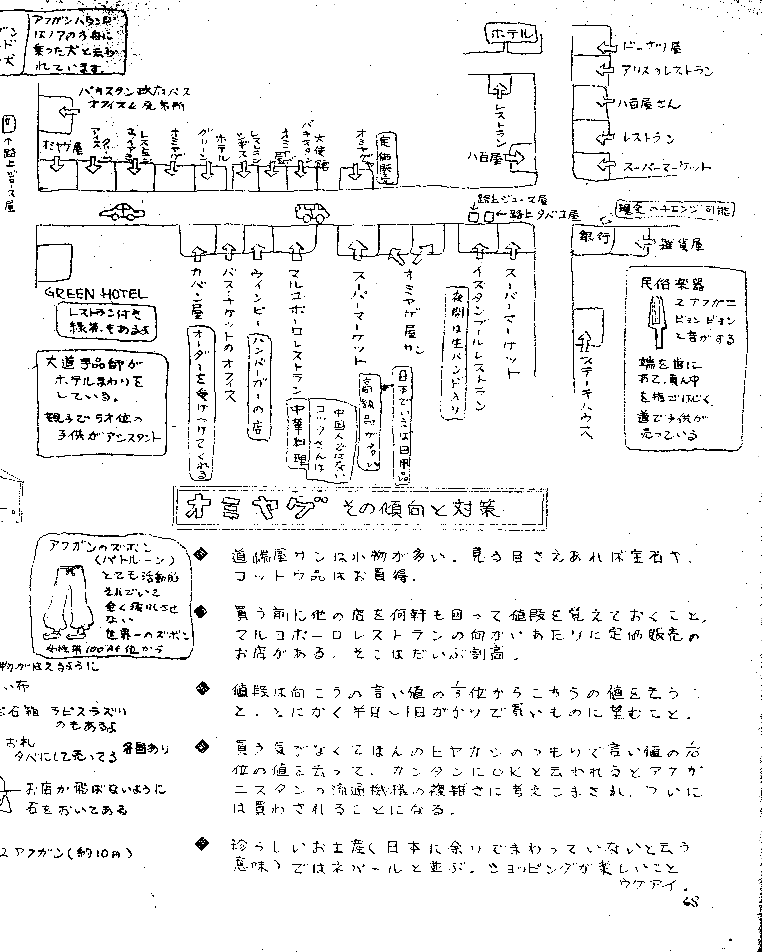 アフガンハウンド
はノアの方舟に
乗った犬と云わ
れています。
ホテル
レストラン
八百屋
アリスのレストラン
八百屋さん
レストラン
スーパーマーケット
パキスタン政府バス
オフィス&発着所
オミヤゲ屋
オミヤゲ
グリーン
ホテル
パキスタン
大使館
オミヤゲ
定価販売
路上ジュース屋
路上ジュース屋
路上タバコ屋
現金のチエンジ可能
銀行
雑貨屋
GREEN HOTEL
レストラン付き
緑茶もあるよ
大道手品師が
ホテルまわりを
している。
親子で5才位の
子供がアシスタント
カバン屋
オーダーを受けつけてくれる
バス・チケットのオフィス
ウィンピー
ハンバーガーの店
マルコポーロレストラン
中華料理
コックさんは
中国人ではない
スーパーマーケット
オミヤゲ屋サン
高級品が多い
日本でいえば日用品
イスタンブルレストラン
夜間は生バンド入り
スーパーマーケット
ステーキハウス
民俗楽器
2アフガニ
ビョンビョン
と音がする
端を歯に
あて、真ん中
を指ではじく。
道で子供が
売っている
オミヤゲ その傾向と対策
アフガンのズボン
(パトルーン)
とても活動的
それでいて
全く疲れさせ
ない
世界一のズボン
道端屋サンは小物が多い。見る目さえあれば宝石や、
コットウ品はお買得。
買う前に他の店を何軒も回って値段を覚えておくこと。
マルコポーロレストランの向かいあたりに定価販売の
お店がある。そこはだいぶ割高。
値段は向こうの言い値の
位からこちらの値を云うこ
と。とにかく半日〜1日がかりで買いものに望むこと。
買う気でなくてほんのヒヤカシのつもりで言い値の
位の値を云って、カンタンにOKと云われるとアフガ
ニスタンの流通機構の複雑さに考えこまされ、ついに
は買わされることになる。
珍らしいお土産(日本に余りでまわっていないと云う
意味)ではネパールと並ぶ。ショッピングが楽しいこと
ウケアイ。
い布
ラピスラズリ
のもあるよ
お札
タバにして売ってる
各国あり
お店が飛ばないように
石をおいてある
2アフガン(約10円)
68